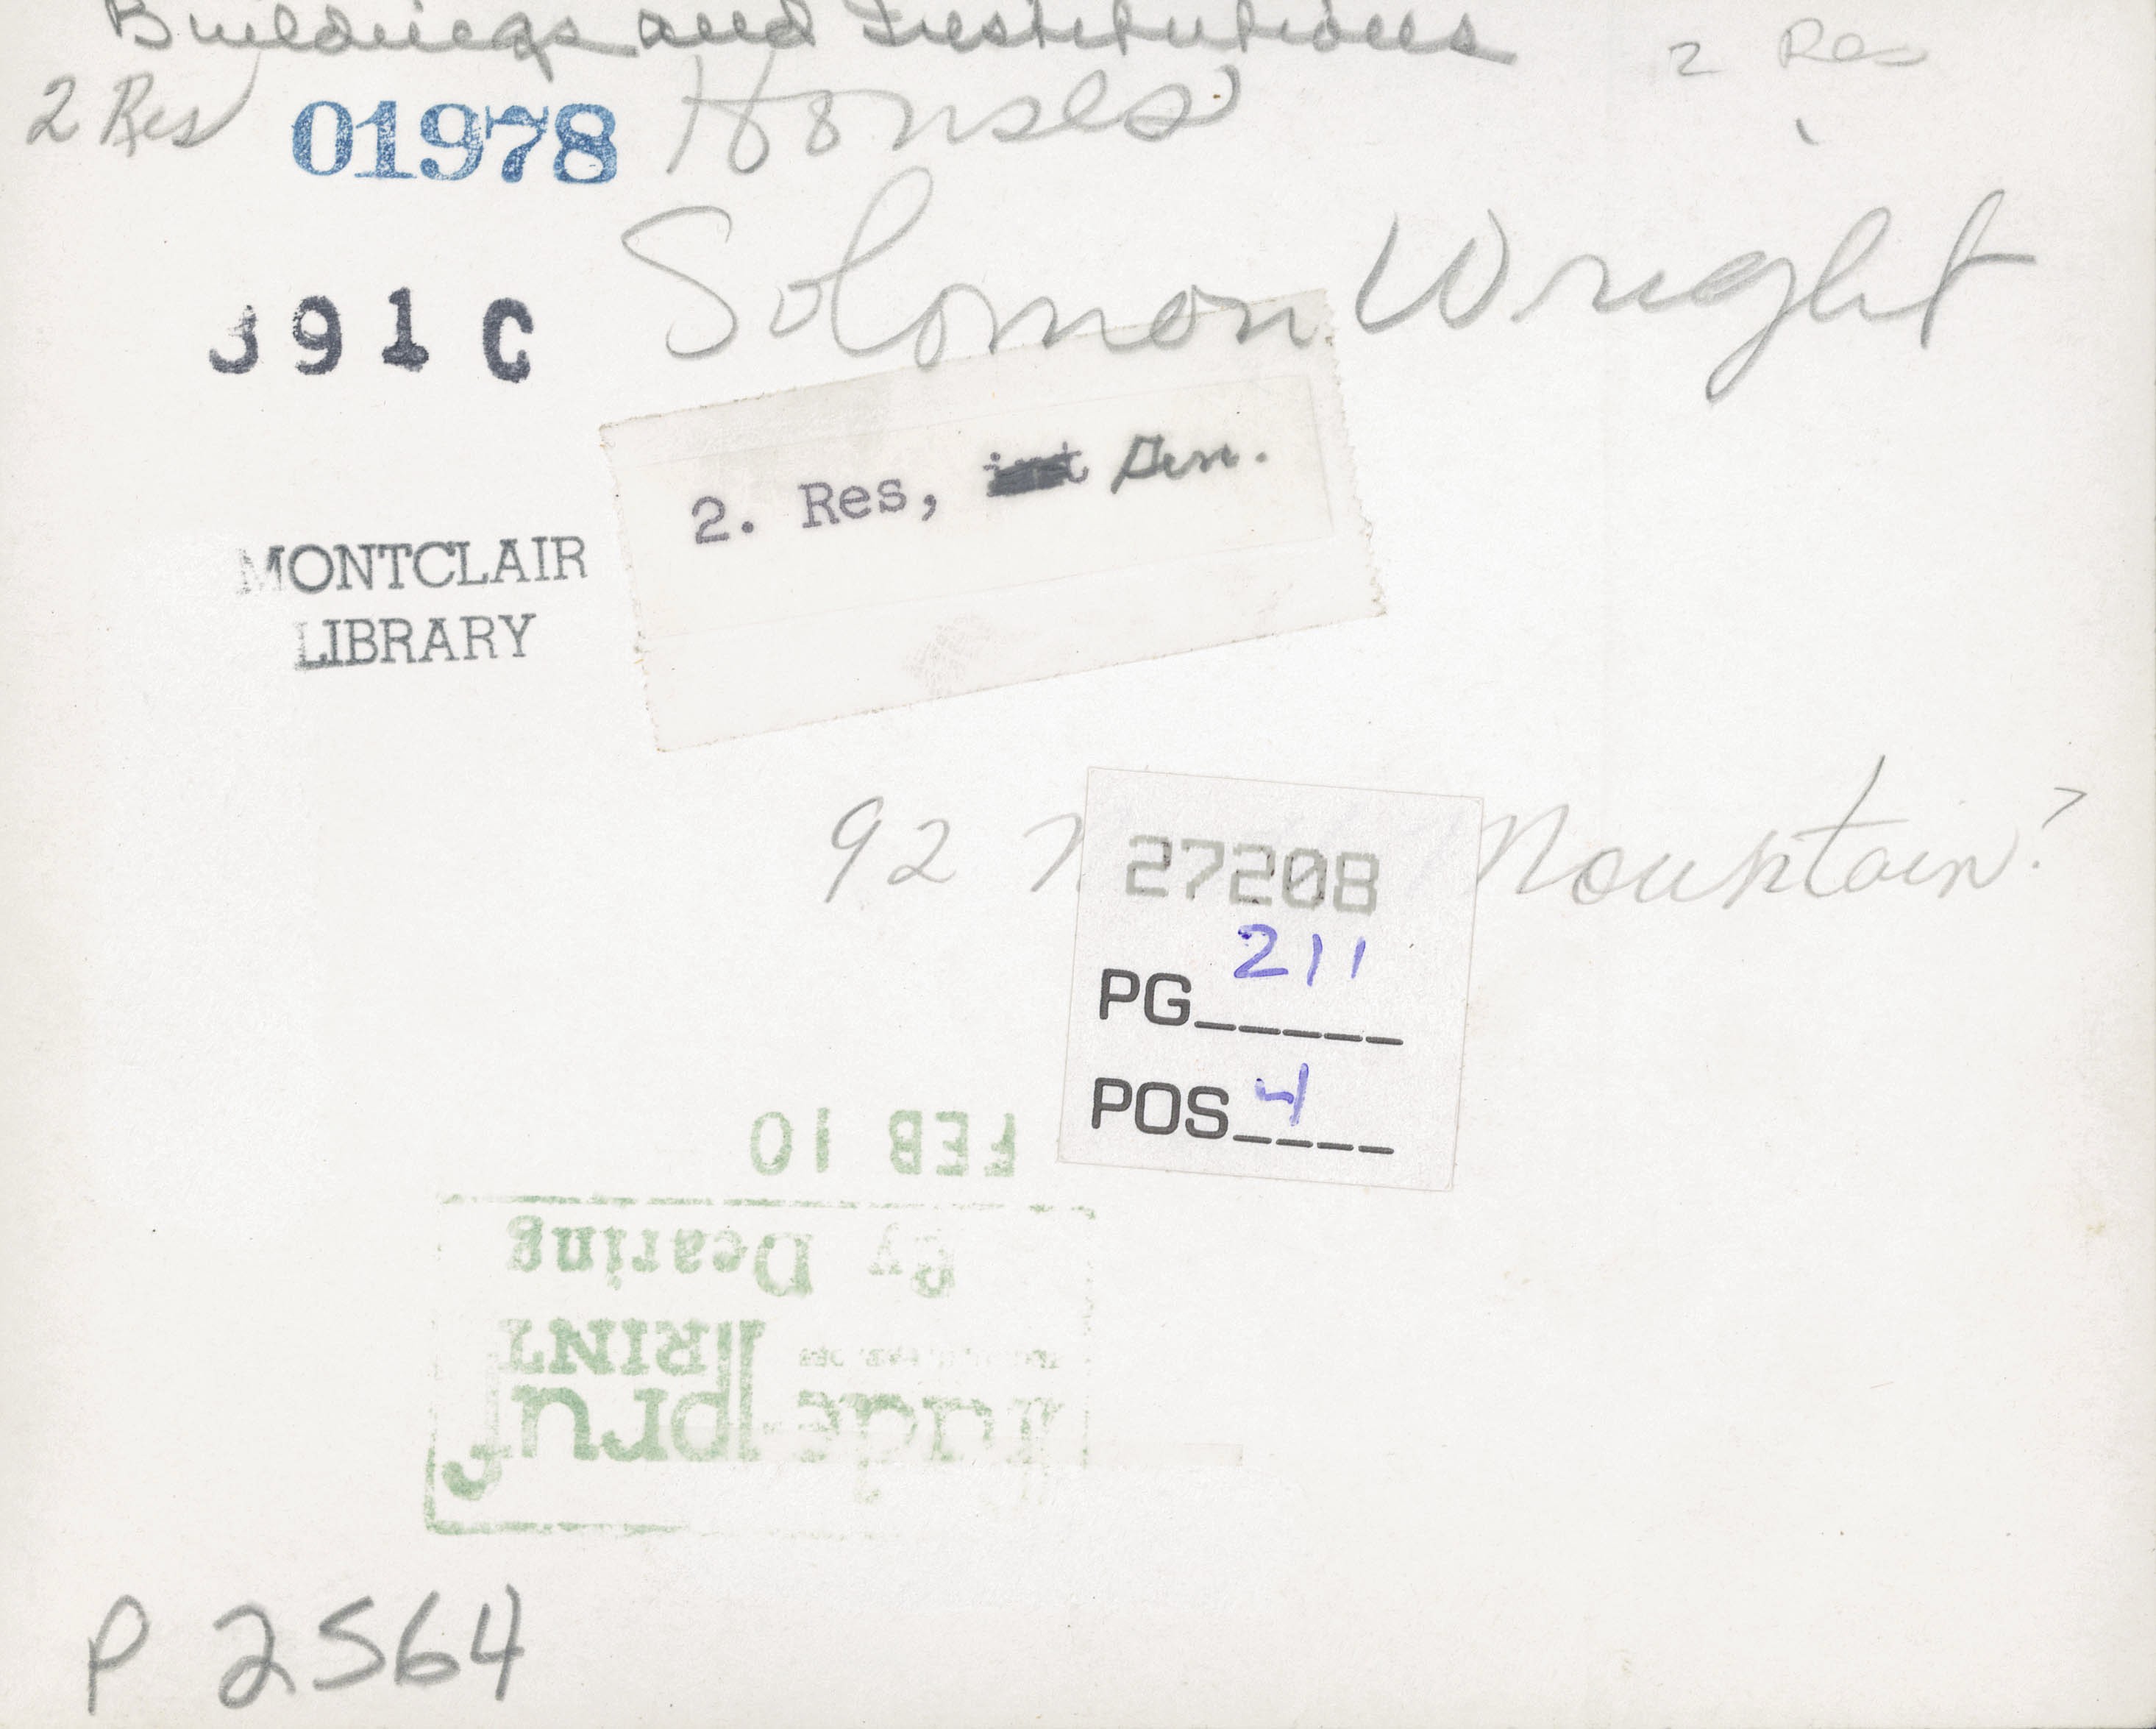 Buildings and Institutions
2 Res
2 Res 01978 Houses
Solomon Wright
391 C
2. Res,
MONTCLAIR
LIBRARY
92 N Mountain?
27208
PG 211
POS 4
FEB 10
By Dearing
PRINT
P 2564